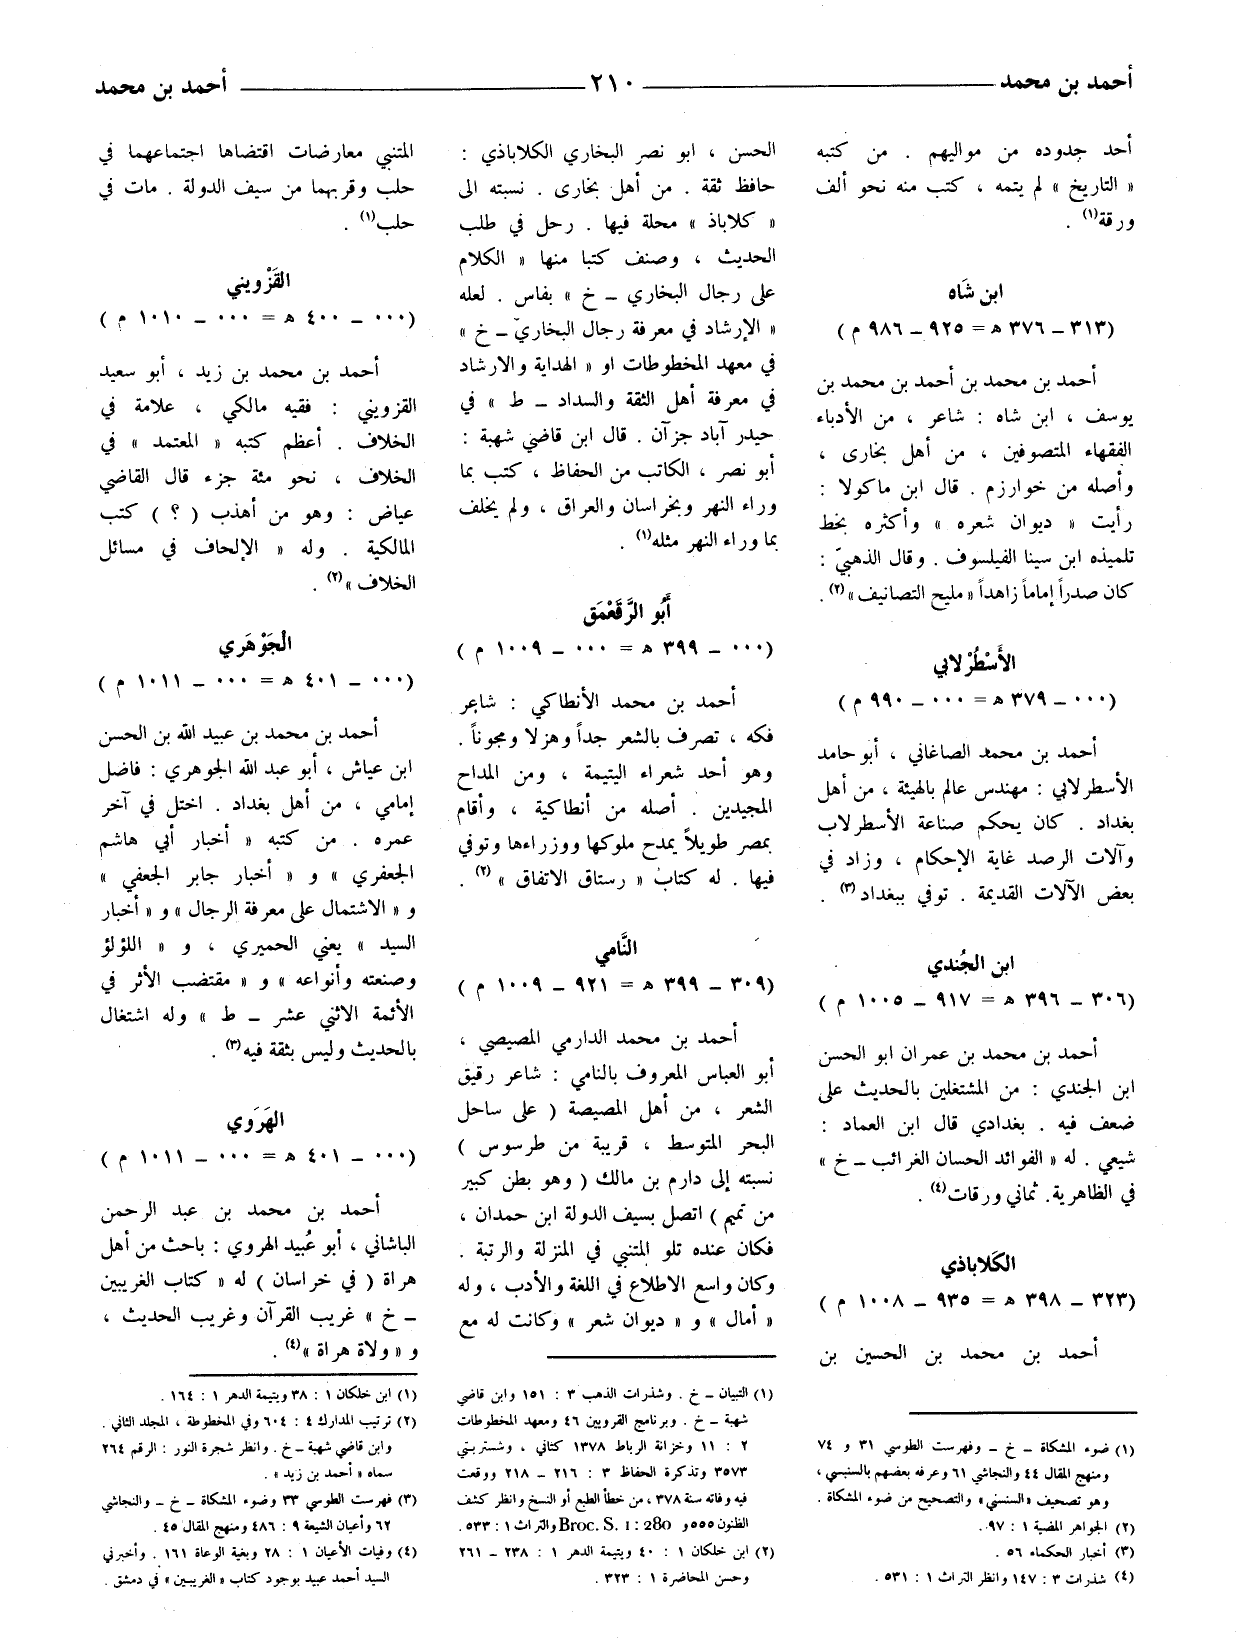 أحمد بن محمد ٢١٠ أحمد بن محمد
أحد جدوده من مواليهم . من كتبه
« التاريخ » لم يتمه ، كتب منه نحو ألف
ورقة(١) .
ابن شَاه
(٣١٣ ــ ٣٧٦ هـ = ٩٢٥ ــ ٩٨٦ م )
أحمد بن محمد بن أحمد بن محمد بن
يوسف ، ابن شاه : شاعر ، من الأدباء
الفقهاء المتصوفين ، من أهل بخارى ،
وأصله من خوارزم . قال ابن ماكولا :
رأيت « ديوان شعره » وأكثره بخط
تلميذه ابن سينا الفيلسوف . وقال الذهبيّ :
كان صدراً إماماً زاهداً « مليح التصانيف »(٢) .
الأَسْطُرْلابي
(٠٠٠ ــ ٣٧٩ هـ = ٠٠٠ ــ ٩٩٠ م )
أحمد بن محمد الصاغاني ، أبو حامد
الأسطرلابي : مهندس عالم بالهيئة ، من أهل
بغداد . كان يحكم صناعة الأسطرلاب
وآلات الرصد غاية الإحكام ، وزاد في
بعض الآلات القديمة . توفي ببغداد(٣) .
ابن الجُندي
(٣٠٦ ــ ٣٩٦ هـ = ٩١٧ ــ ١٠٠٥ م )
أحمد بن محمد بن عمران ابو الحسن
ابن الجندي : من المشتغلين بالحديث على
ضعف فيه . بغدادي قال ابن العماد :
شيعي . له « الفوائد الحسان الغرائب ــ خ »
في الظاهرية . ثماني ورقات(٤) .
الكَلاباذي
(٣٢٣ ــ ٣٩٨ هـ = ٩٣٥ ــ ١٠٠٨ م )
أحمد بن محمد بن الحسين بن
(١) ضوء المشكاة ــ خ ــ وفهرست الطوسي ٣١ و ٧٤
ومنهج المقال ٤٤ والنجاشي ٦١ وعرفه بعضهم بالسنبسي ،
وهو تصحيف «السنسني» والتصحيح من ضوء المشكاة .
(٢) الجواهر المضية ١ : ٩٧.
(٣) أخبار الحكماء ٥٦ .
(٤) شذرات ٣ : ١٤٧ وانظر التراث ١ : ٥٣١ .
الحسن ، ابو نصر البخاري الكلاباذي :
حافظ ثقة . من أهل بخارى . نسبته الى
« كلاباذ » محلة فيها . رحل في طلب
الحديث ، وصنف كتبا منها « الكلام
على رجال البخاري ــ خ » بفاس . لعله
« الإرشاد في معرفة رجال البخاريّ ــ خ »
في معهد المخطوطات او « الهداية والارشاد
في معرفة أهل الثقة والسداد ــ ط » في
حيدر آباد جزآن . قال ابن قاضي شهبة :
أبو نصر ، الكاتب من الحفاظ ، كتب بما
وراء النهر وبخراسان والعراق ، ولم يخلف
بما وراء النهر مثله(١) .
أَبُو الرَّقَعْمَق
(٠٠٠ ــ ٣٩٩ هـ = ٠٠٠ ــ ١٠٠٩ م )
أحمد بن محمد الأنطاكي : شاعر
فكه ، تصرف بالشعر جداً وهزلا ومجوناً .
وهو أحد شعراء اليتيمة ، ومن المداح
المجيدين . أصله من أنطاكية ، وأقام
بمصر طويلاً يمدح ملوكها ووزراءها وتوفي
فيها . له كتاب « رستاق الاتفاق »(٢) .
النَّامي
(٣٠٩ ــ ٣٩٩ هـ = ٩٢١ ــ ١٠٠٩ م )
أحمد بن محمد الدارمي المصيصي ،
أبو العباس المعروف بالنامي : شاعر رقيق
الشعر ، من أهل المصيصة ( على ساحل
البحر المتوسط ، قريبة من طرسوس )
نسبته إلى دارم بن مالك ( وهو بطن كبير
من تميم ) اتصل بسيف الدولة ابن حمدان ،
فكان عنده تلو المتنبي في المنزلة والرتبة .
وكان واسع الاطلاع في اللغة والأدب ، وله
« أمال » و « ديوان شعر » وكانت له مع
(١) التبيان ــ خ . وشذرات الذهب ٣ : ١٥١ وابن قاضي
شهبة ــ خ . وبرنامج القرويين ٤٦ ومعهد المخطوطات
٢ : ١١ وخزانة الرباط ١٣٧٨ كتاني ، وشستربتي
٣٥٧٣ وتذكرة الحفاظ ٣ : ٢١٦ ــ ٢١٨ ووقعت
فيه وفاته سنة ٣٧٨ ، من خطأ الطبع أو النسخ وانظر كشف
الظنون ٥٥٥ و Broc. S. 1: 280 والتراث ١ : ٥٣٣.
(٢) ابن خلكان ١ : ٤٠ ويتيمة الدهر ١ : ٢٣٨ ــ ٢٦١
وحسن المحاضرة ١ : ٣٢٣ .
المتنبي معارضات اقتضاها اجتماعهما في
حلب وقربهما من سيف الدولة . مات في
حلب(١) .
القَزْويني
(٠٠٠ ــ ٤٠٠ هـ = ٠٠٠ ــ ١٠١٠ م )
أحمد بن محمد بن زيد ، أبو سعيد
القزويني : فقيه مالكي ، علامة في
الخلاف . أعظم كتبه « المعتمد » في
الخلاف ، نحو مئة جزء قال القاضي
عياض : وهو من أهذب ( ؟ ) كتب
المالكية . وله « الإلحاف في مسائل
الخلاف »(٢) .
الجَوْهَري
(٠٠٠ ــ ٤٠١ هـ = ٠٠٠ ــ ١٠١١ م )
أحمد بن محمد بن عبيد الله بن الحسن
ابن عياش ، أبو عبد الله الجوهري : فاضل
إمامي ، من أهل بغداد . اختل في آخر
عمره . من كتبه « أخبار أبي هاشم
الجعفري » و « أخبار جابر الجعفي »
و « الاشتمال على معرفة الرجال » و « أخبار
السيد » يعني الحميري ، و « اللؤلؤ
وصنعته وأنواعه » و « مقتضب الأثر في
الأئمة الاثني عشر ــ ط » وله اشتغال
بالحديث وليس بثقة فيه(٣) .
الهَرَوي
(٠٠٠ ــ ٤٠١ هـ = ٠٠٠ ــ ١٠١١ م )
أحمد بن محمد بن عبد الرحمن
الباشاني ، أبو عُبيد الهروي : باحث من أهل
هراة ( في خراسان ) له « كتاب الغريبين
ــ خ » غريب القرآن وغريب الحديث ،
و « ولاة هراة »(٤) .
(١) ابن خلكان ١ : ٣٨ ويتيمة الدهر ١ : ١٦٤ .
(٢) ترتيب المدارك ٤ : ٦٠٤ وفي المخطوطة ، المجلد الثاني .
وابن قاضي شهبة ــ خ . وانظر شجرة النور : الرقم ٢٦٤
سماه « أحمد بن زيد » .
(٣) فهرست الطوسي ٣٣ وضوء المشكاة ــ خ ــ والنجاشي
٦٢ وأعيان الشيعة ٩ : ٤٨٦ ومنهج المقال ٤٥ .
(٤) وفيات الأعيان ١ : ٢٨ وبغية الوعاة ١٦١ . وأخبرني
السيد أحمد عبيد بوجود كتاب « الغريبين » في دمشق .